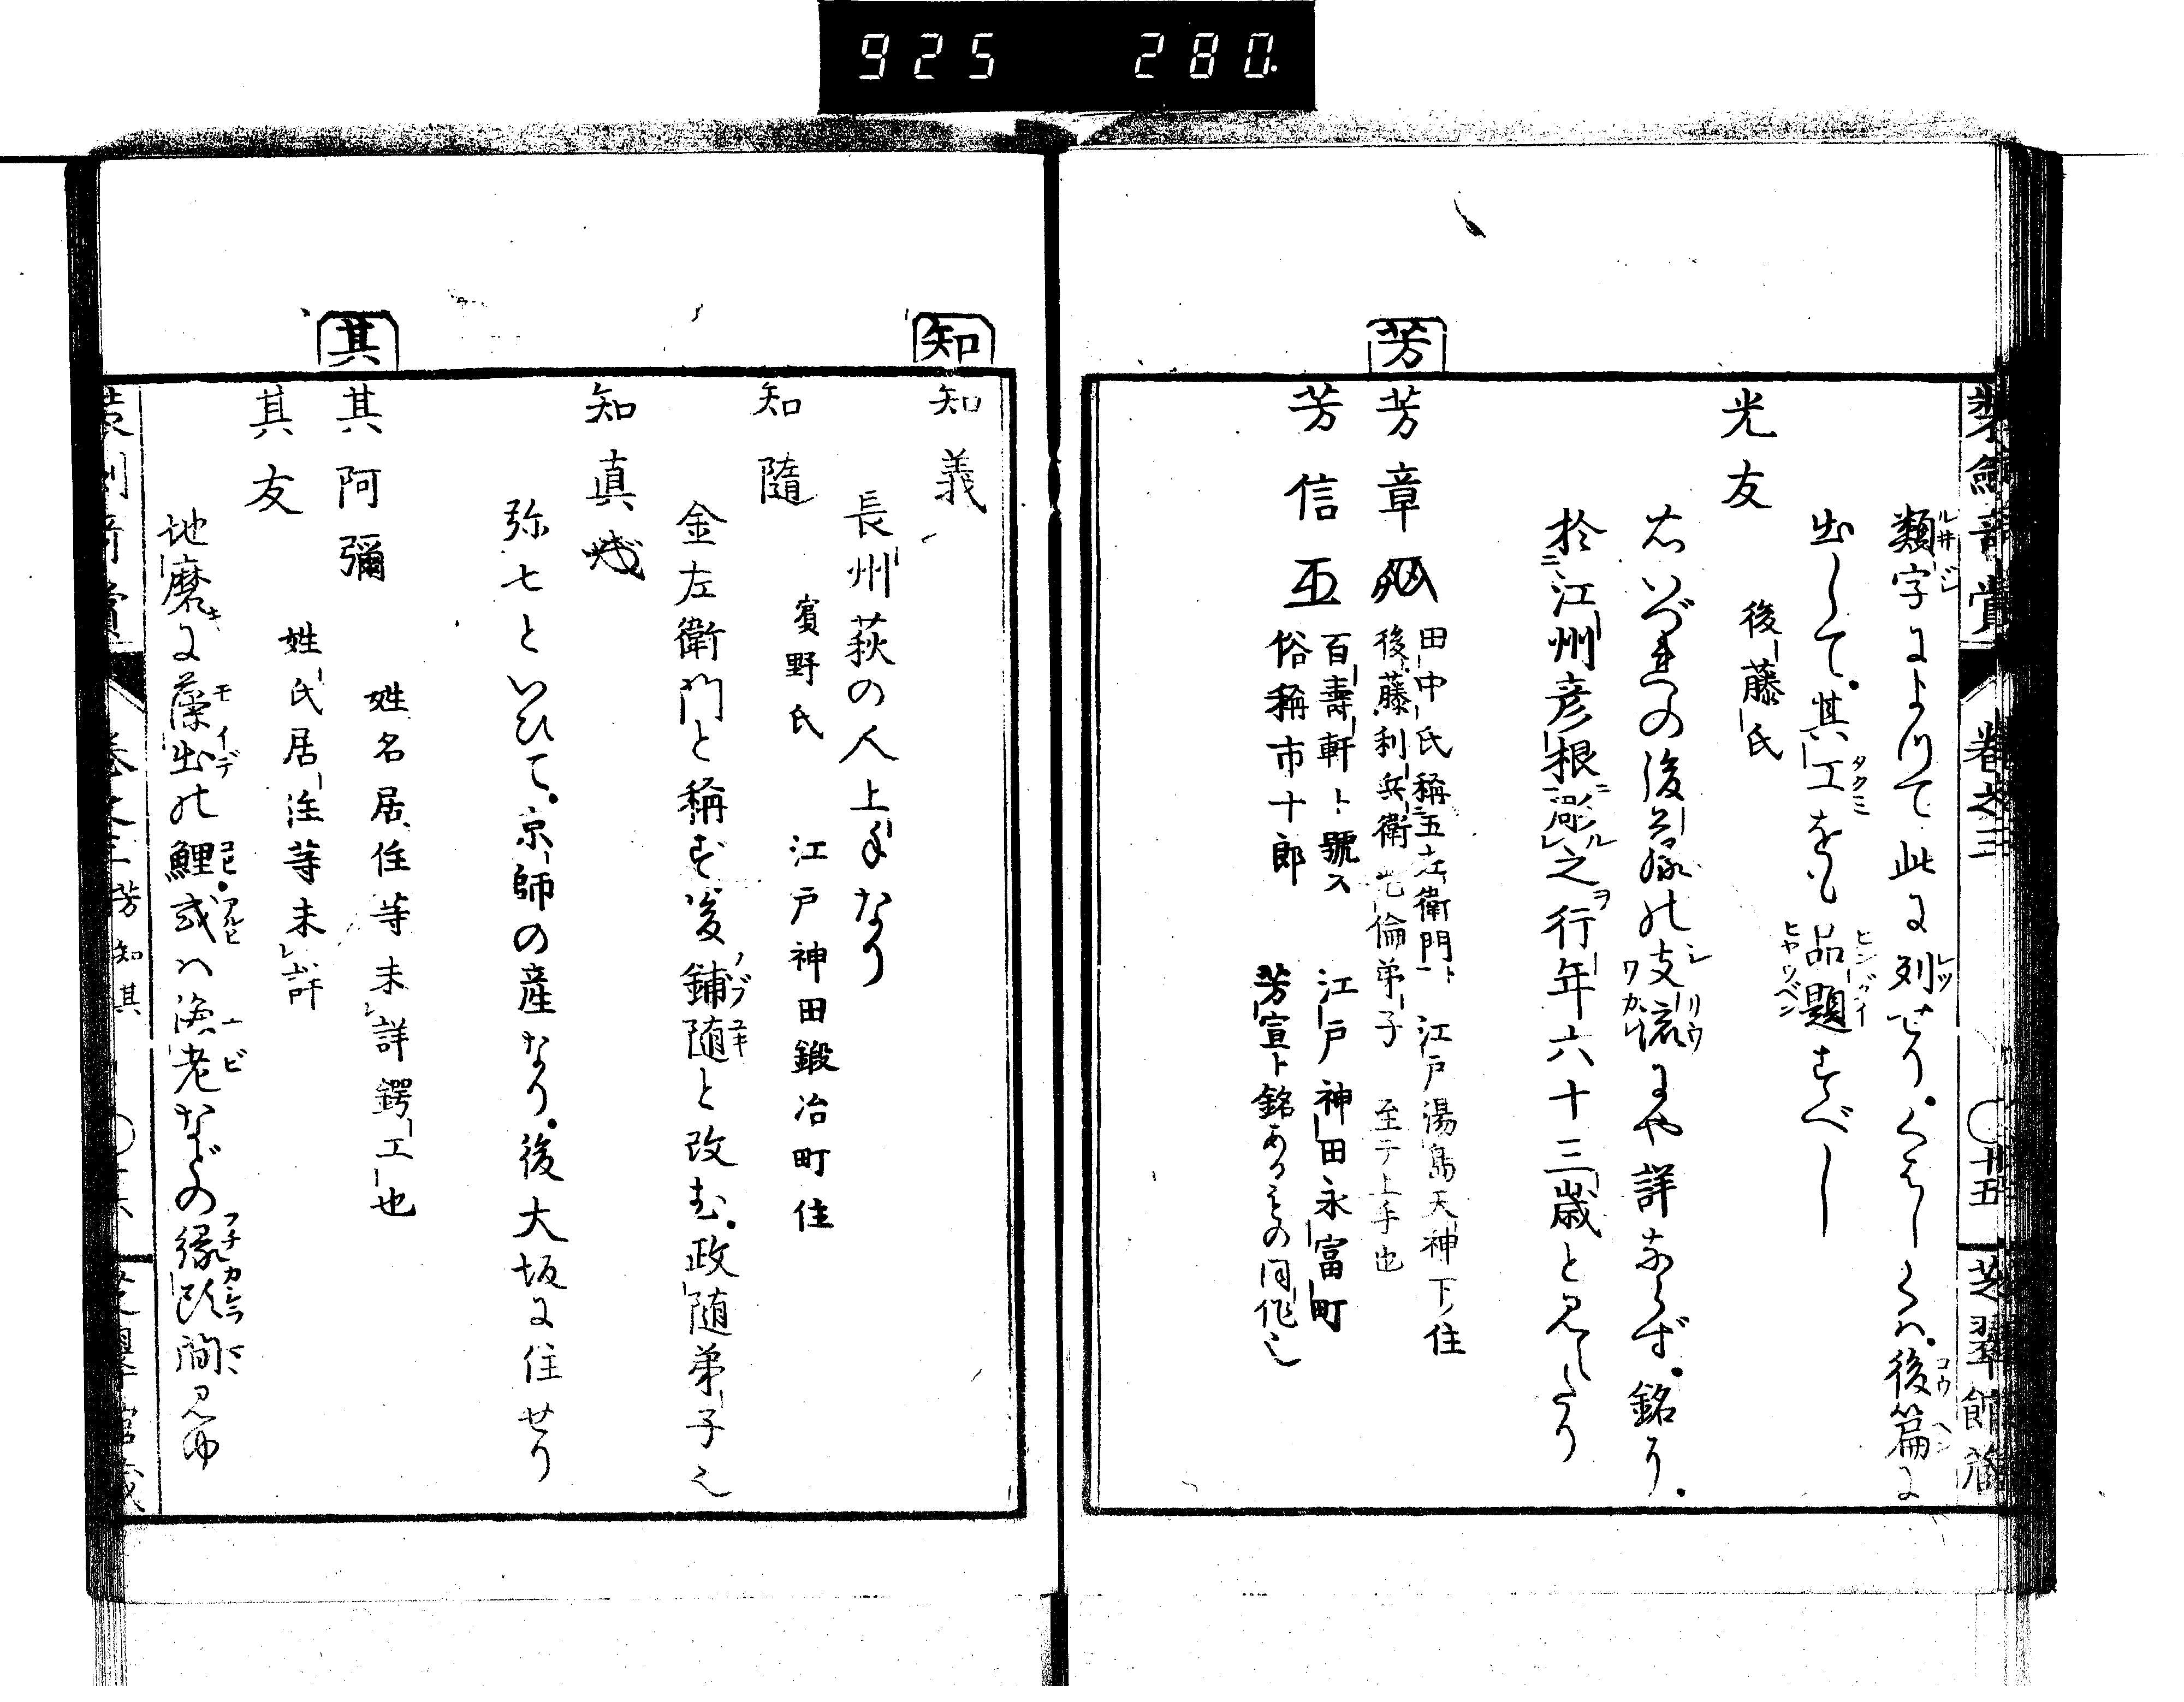 925 280
装劔竒賞 巻之三 ○廿五 芝翠館藏
類字によりて此に列せり。くはしくハ。後篇に
出して。其工をも品題すべし
光友 後藤氏
右いづれの後藤の支流にや詳ならず。銘に。
於江州彦根彫之行年六十三歳と見へたり
芳
芳章 田中氏稱五左衛門ト 江戸湯島天神下ノ住
後藤利兵衛光倫弟子 至テ上手也
芳信 百壽軒ト號ス 江戸神田永富町
俗稱市十郎 芳宣ト銘あるもの同作也
知
知義
長州萩の人上手なり
知隨 賓野氏 江戸神田鍛冶町住
金左衛門と稱す後鋪随と改む。政随弟子也
知真
弥七といひて。京師の産なり。後大坂に住せり
其
其阿彌 姓名居住等未詳鍔工也
其友 姓氏居住等未詳
地磨に藻出の鯉或ハ漁老などの縁頭間見ゆ
巻之三 芳知其